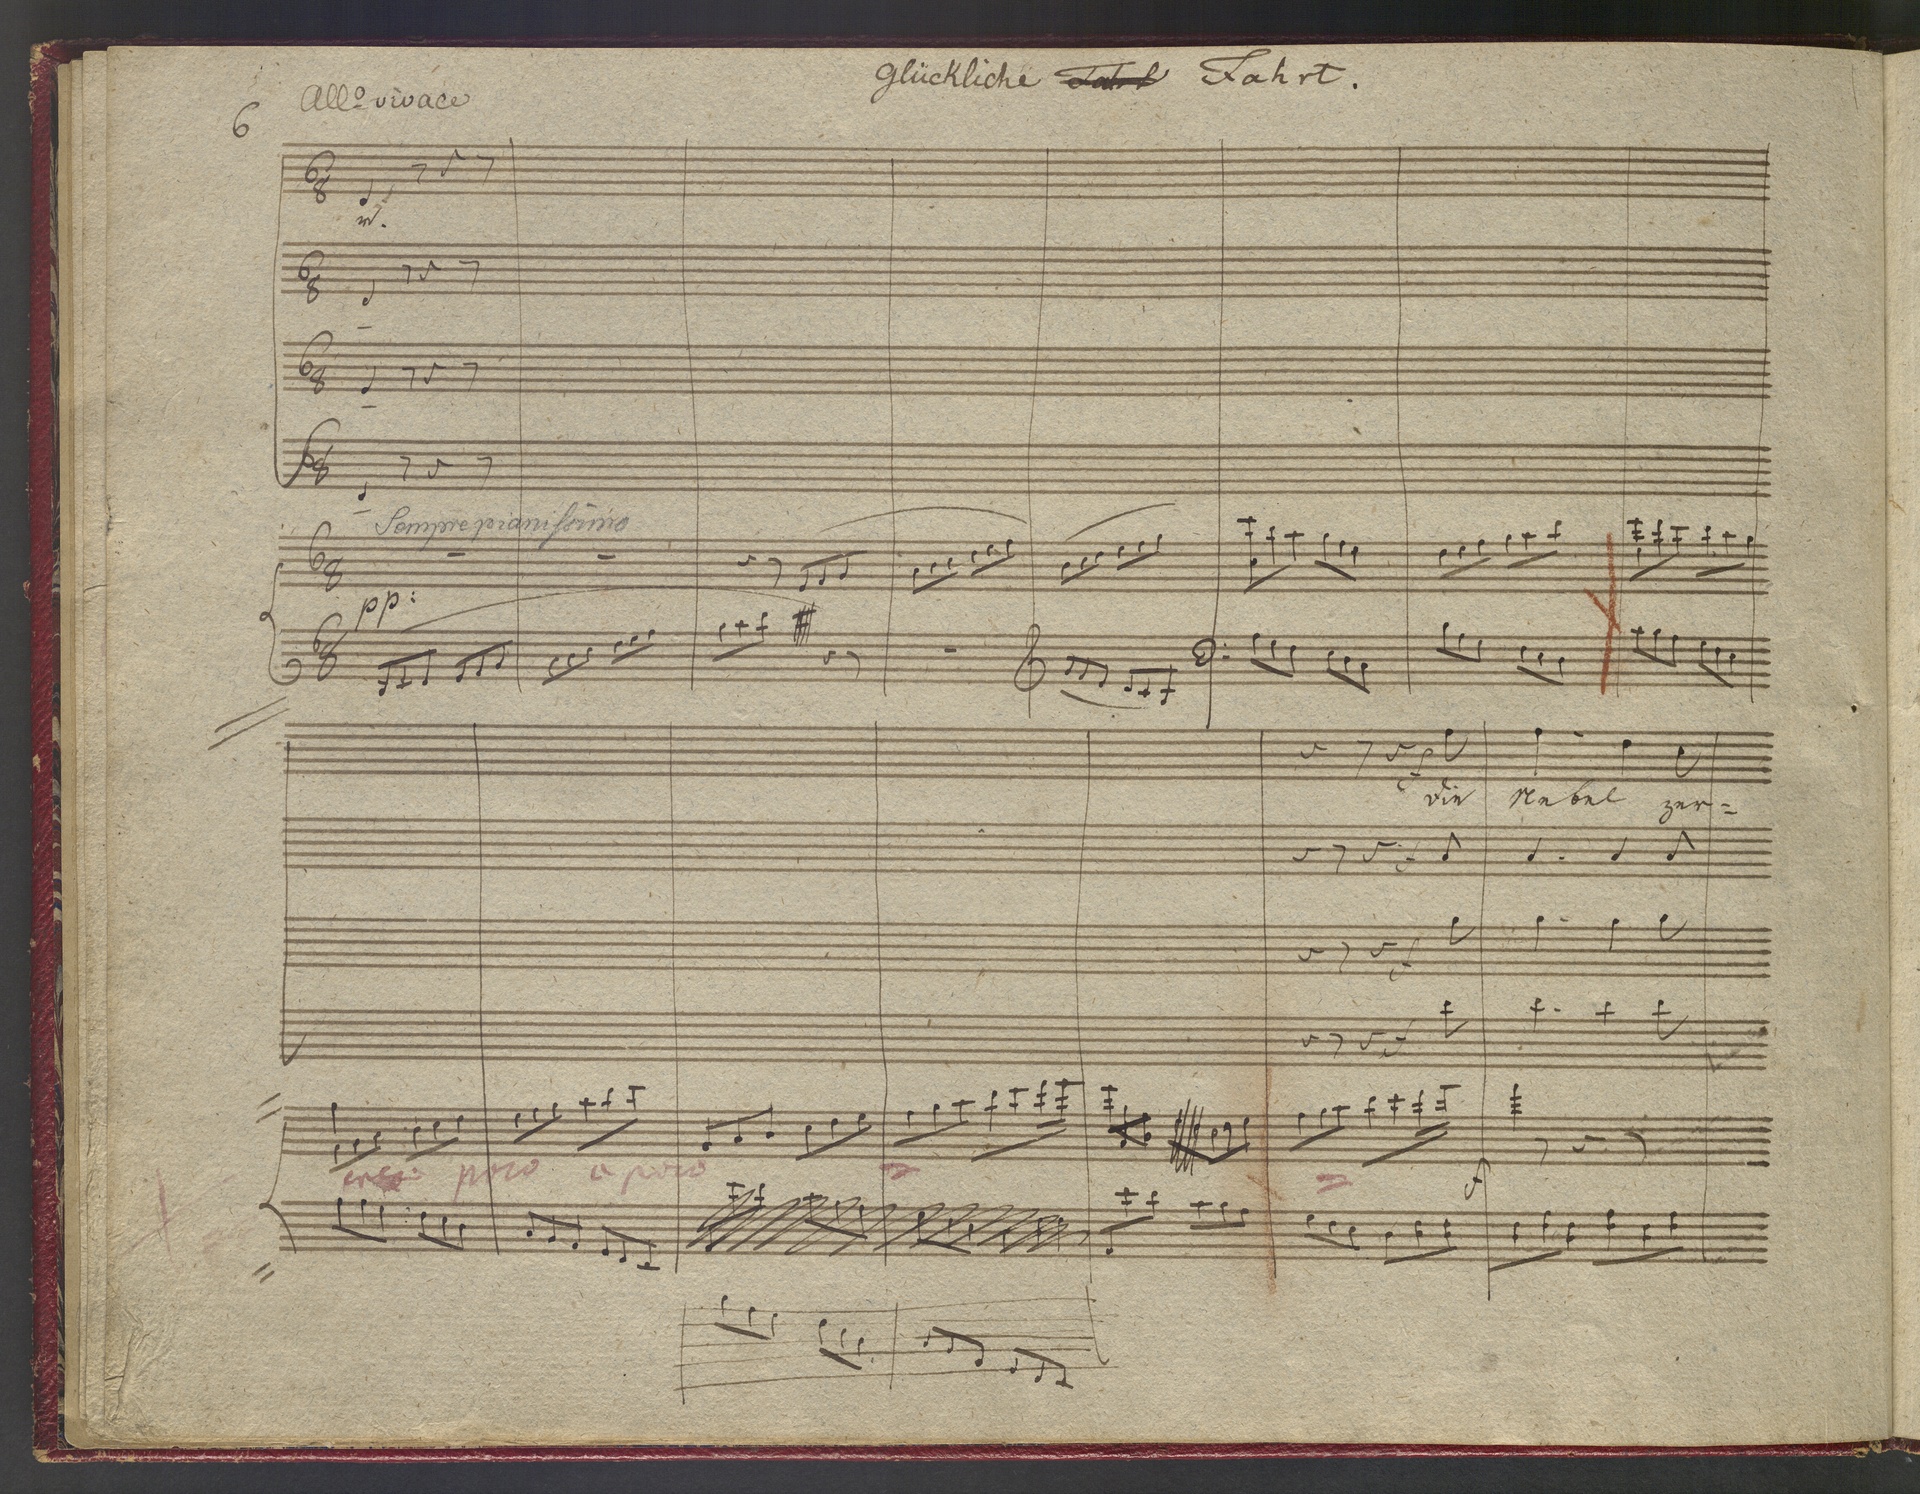 Glückliche Fahrt Fahrt.
6 Allo vivace
Sempre pianissimo
pp:
die Nebel zer=
poco a poco
f